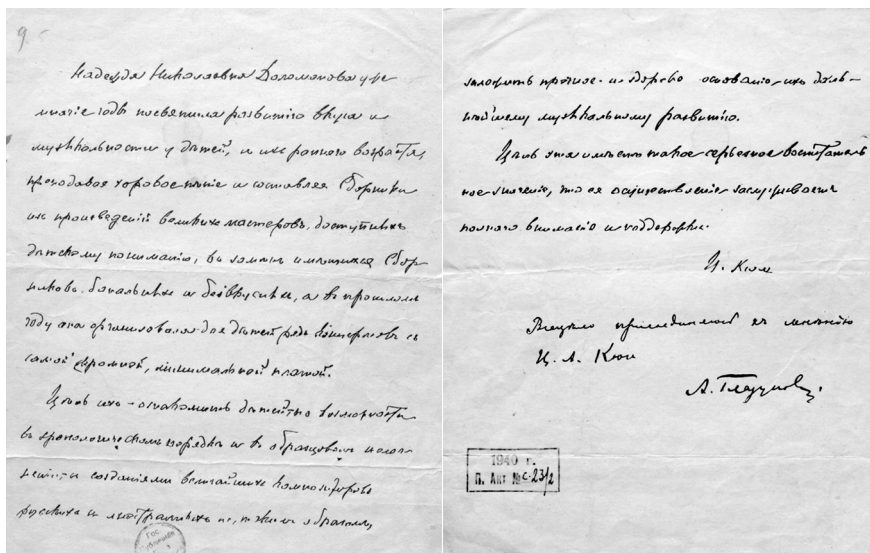 9.
Надежда Николаевна Доломанова уже
многіе годы посвятила развитію вкуса и
музыкальности у дѣтей, и ихъ ранняго возраста,
преподавая хоровое пѣніе и составляя сборники
изъ произведеній великихъ мастеровъ, доступныхъ
дѣтскому пониманію, въ замѣнъ имѣющихся сбор-
никовъ банальныхъ и безвкусныхъ, а въ прошломъ
году она организовала для дѣтей рядъ концертовъ съ
самой скромной, минимальной платой.
Цѣль ихъ - ознакомить дѣтей по возможности
въ хронологическомъ порядкѣ и въ образцовомъ испол-
неніи съ созданіями величайшихъ композиторовъ
русскихъ и иностранныхъ и, такимъ образомъ,
Гос.
заложить прочное и здоровое основаніе ихъ даль-
нѣйшему музыкальному развитію.
Цѣль эта имѣетъ такое серьезное воспитатель
ное значеніе, что ея осуществленіе заслуживаетъ
полнаго вниманія и поддержки.
Ц. Кюи
Всецѣло присоединяюсь къ мнѣнію
Ц. А. Кюи
А. Глазуновъ
1940 г.
П. Акт № с-23/2